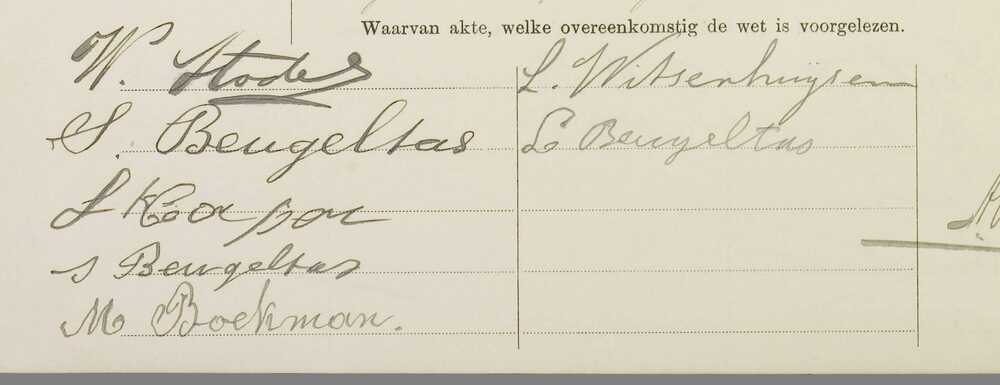 Waarvan akte, welke overeenkomstig de wet is voorgelezen.
W. Stodel
S. Beugeltas
S Koopon
s Beugeltas
M Boekman.
L. Witsenhuysen
L Beugeltas